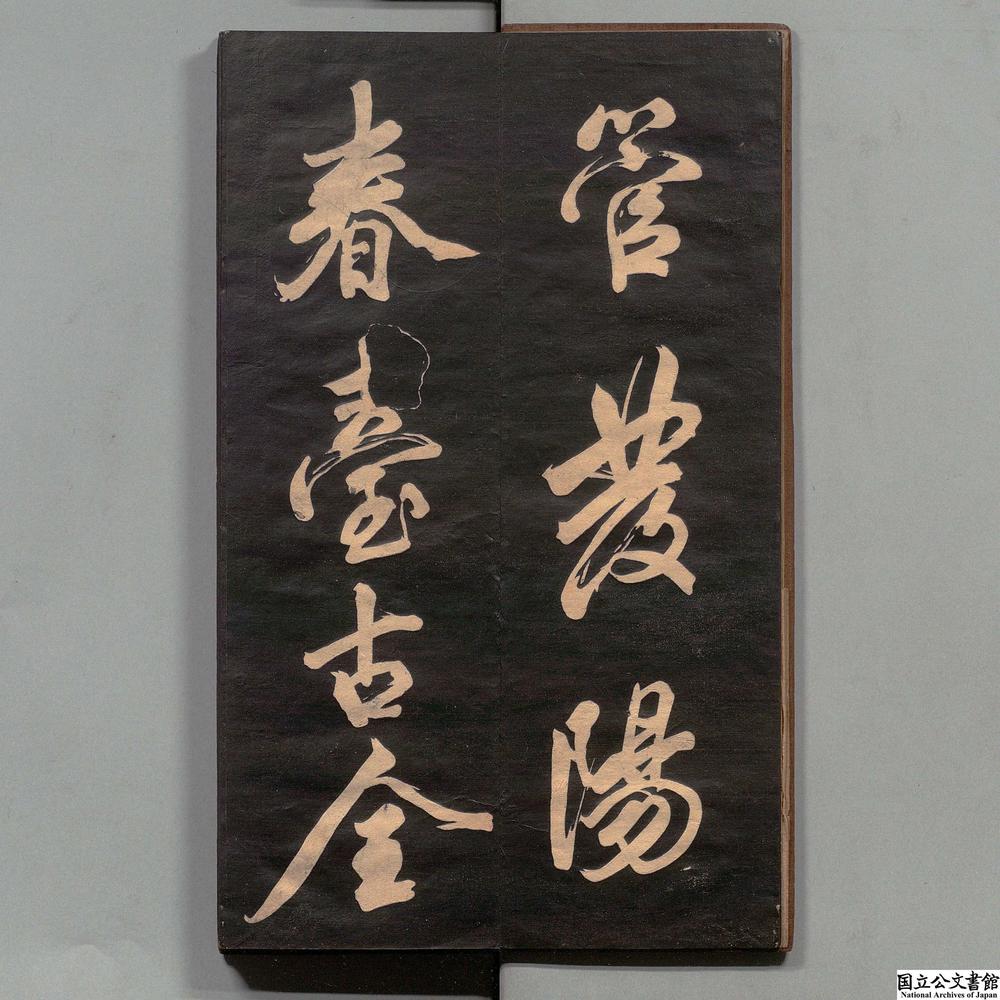 管發陽
春臺古全
国立公文書館
National Archives of Japan